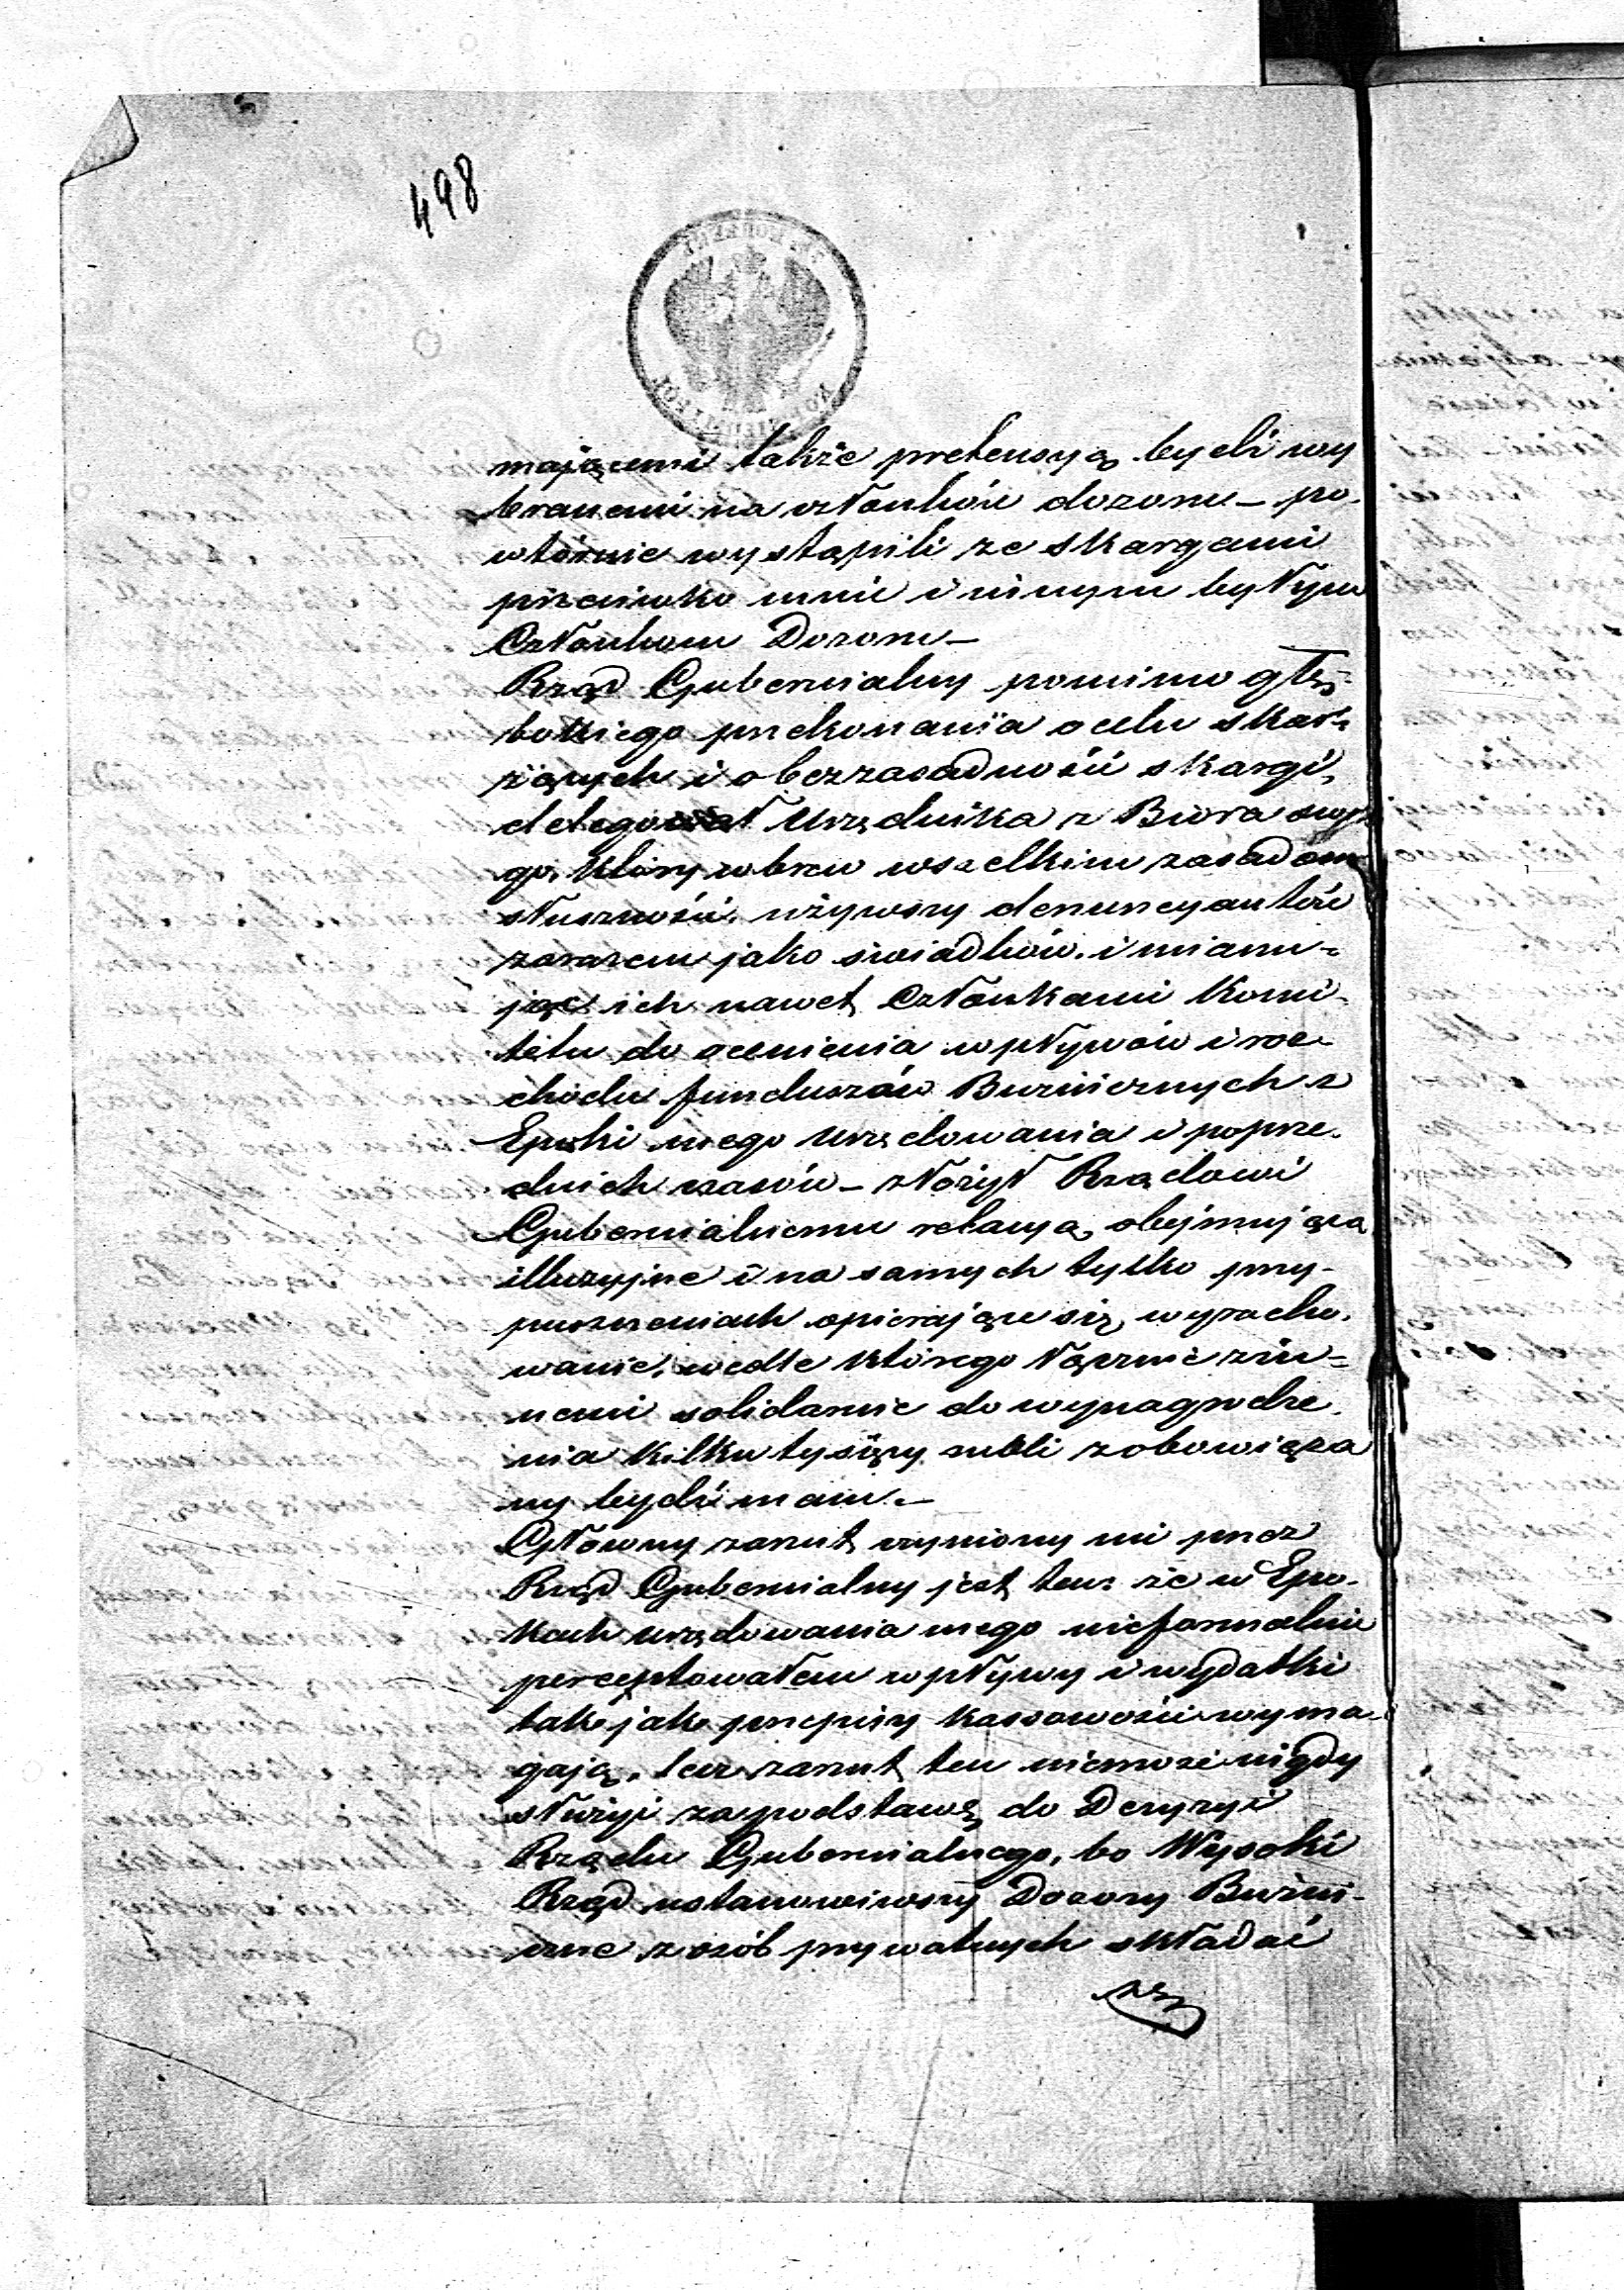 498
mającemi także pretensyą bydź wy
branemi na członków dozoru – po-
wtórnie wystąpili ze skargami
przeciwko mnie i innym byłym
Członkom Dozoru –
Rząd Gubernialny pomimo głę-
bokiego przekonania o celu skar-
żących i o bezzasadności skargi,
delegował Urzędnika z Biura swe
go, który wbrew wszelkim zasadom
słuszności, używszy denuncyantów
zarazem jako świadków, i mianu-
jąc ich nawet Członkami Komi-
tetu do ocenienia wpływów i roz-
chodu funduszów Bużniczych z
Epoki mego urzędowania i poprze-
dnich czasów – złożył Rządowi
Gubernialnemu relacyą obejmującą
illuzyjne i na samych tylko przy-
puszczeniach opierające się wyracho-
wanie, wedle którego łącznie z in-
nemi solidarnie do wynagrodze-
nia kilku tysięcy rubli zobowiąza
ny bydź mam. –
Główny zarzut czyniony mi przez
Rząd Gubernialny jest ten że w Epo-
kach urzędowania mego nieformalnie
perceptowałem wpływy i wydatki
tak jak przepisy kassowości wyma-
gają, lecz zarzut ten niemoże nigdy
służyć za podstawę do Decyzyi
Rządu Gubernialnego, bo Wysoki
Rząd ustanowiwszy Dozory Bużni-
czne z osób prywatnych składać
się